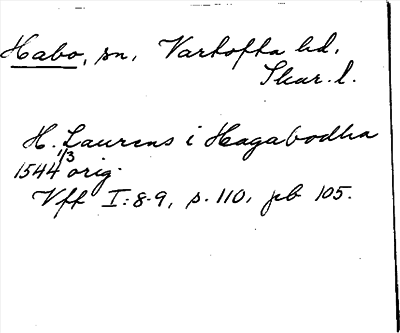 Habo, sn, Vartofta hd,
Skar. l.
H. Laurens i Hagabodha
1544 1/3 orig.
Vff I:8-9, s. 110, pb 105.